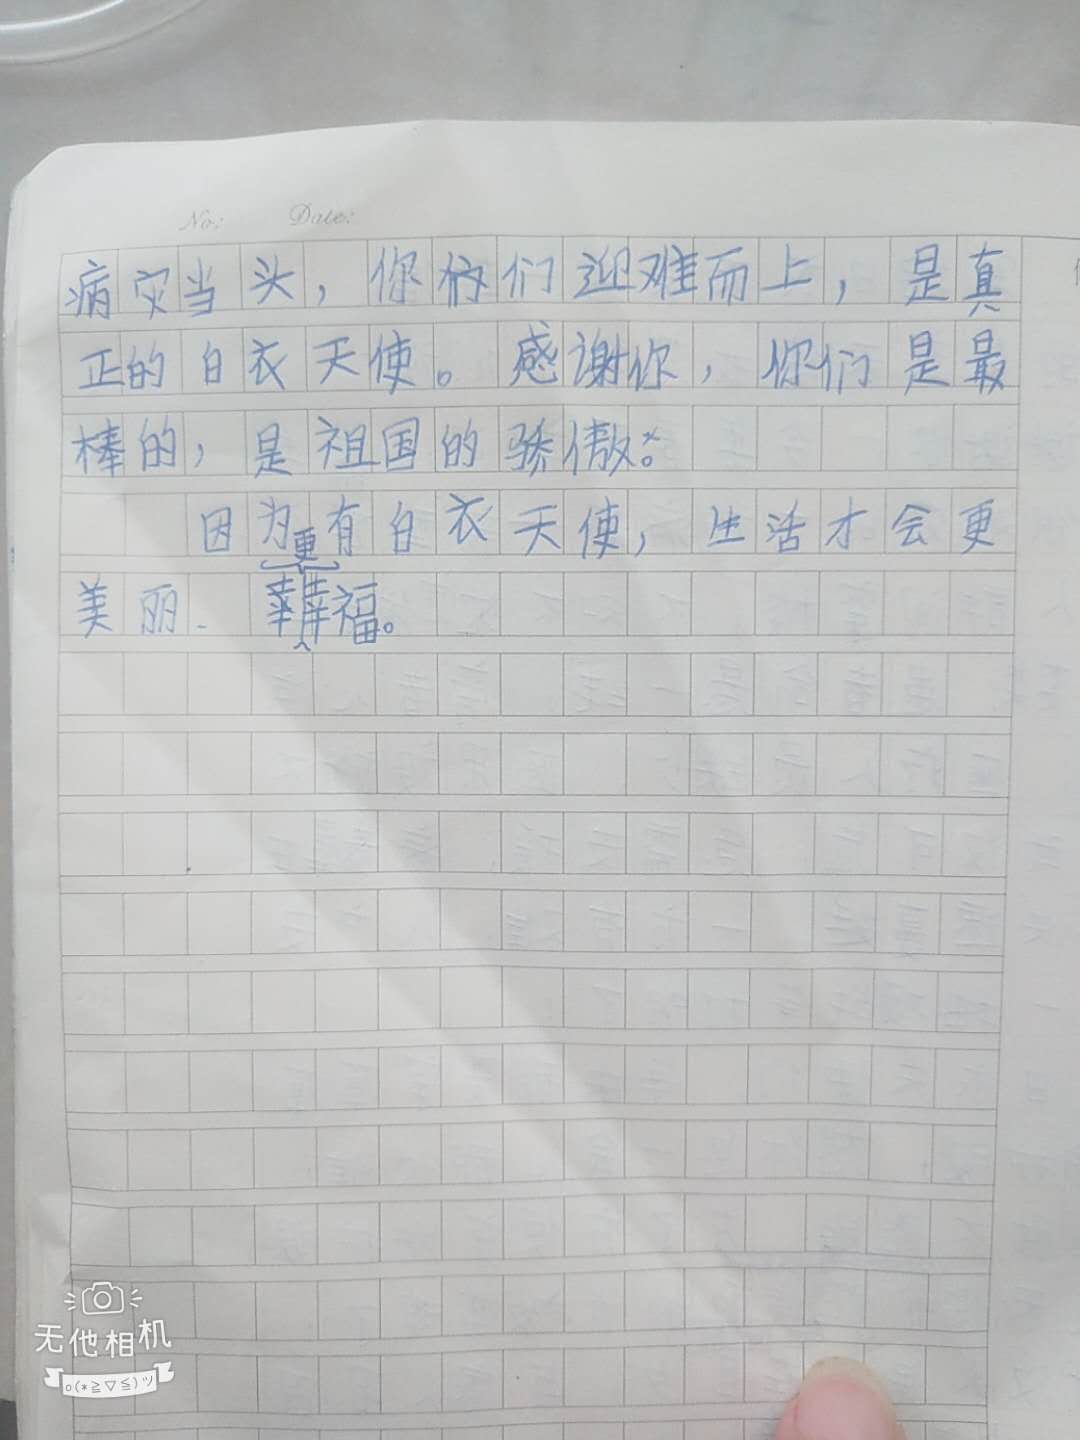 No: Date:
病灾当头，你们迎难而上，是真
正的白衣天使。感谢你，你们是最
棒的，是祖国的骄傲。
因为有白衣天使，生活才会更
美丽、更幸福。
无他相机
o(*≧▽≦)ツ